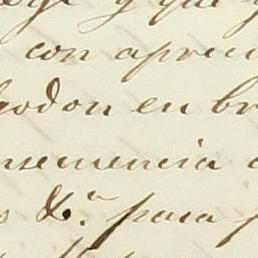 y que
con apren
godon en br
nsemencia
s &.ª para